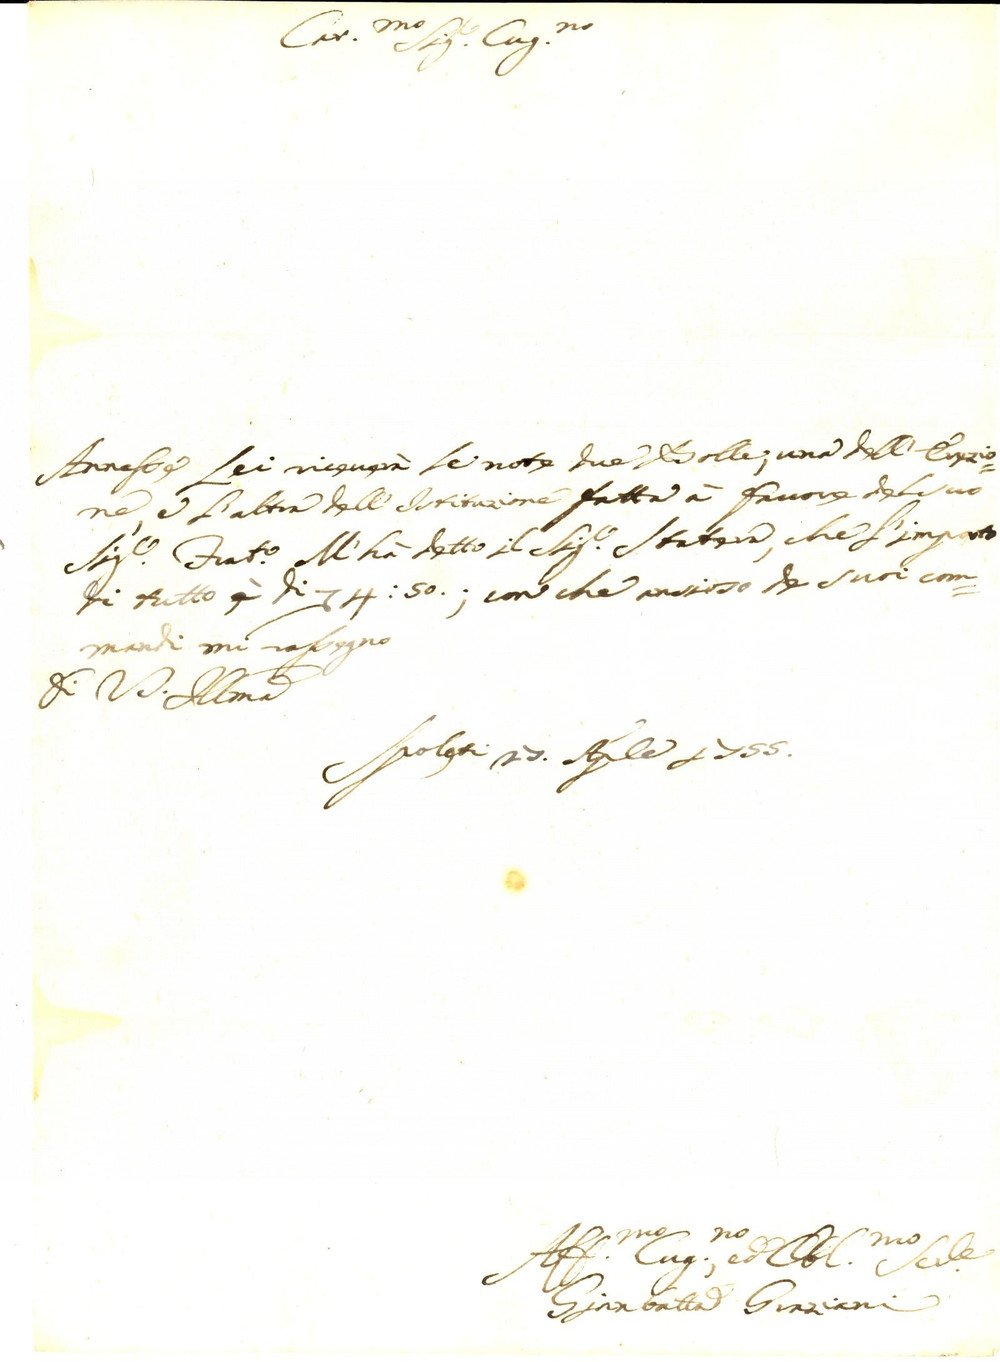 Car.mo Sig.e Cug.no
Annesse Lei riceverà le note due Bolle; una dell' Erezio=
ne, e l'altra dell' Istituzione fatta à favore del suo
Sig.e Frat.o M'hà detto il Sig.e Statera, che l'importo
di tutto è di 74:50.; con che ansioso de suoi com=
mandi mi rassegno
Di V.S. Illma
Spoleti 27. Aple 1755.
Aff.mo Cug.no, ed Obl.mo Ser.e
Gianbatta Graziani